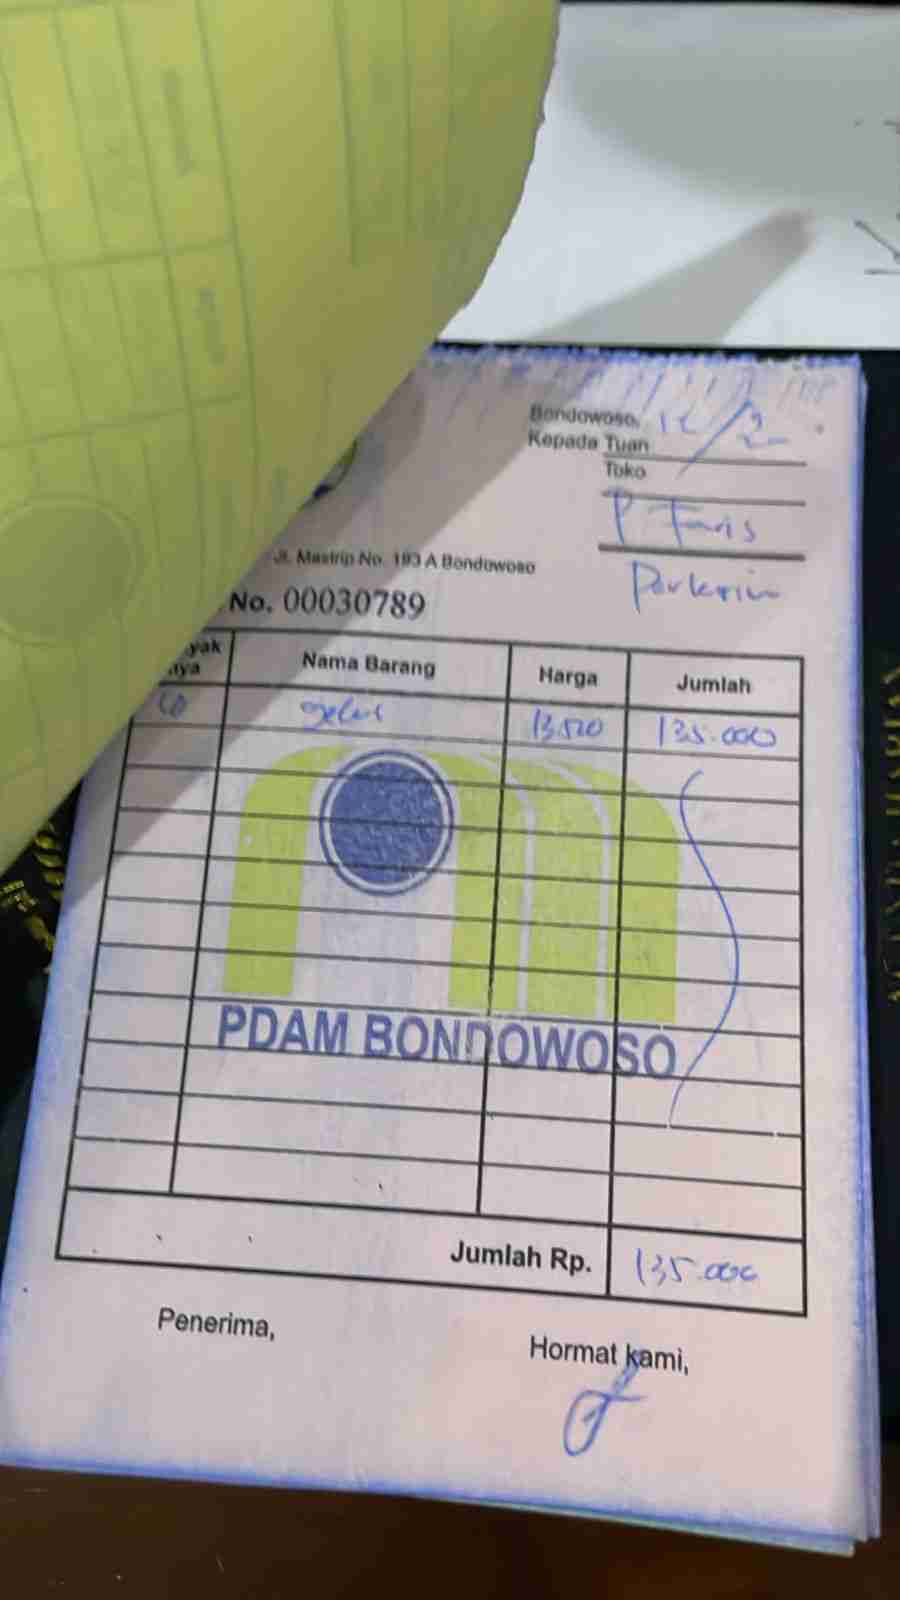 Bondowoso, 12/9
Kepada Tuan
Toko
P Faris
Jl. Mastrip No. 193 A Bondowoso
No. 00030789
yak
nya Nama Barang Harga Jumlah
10 gelas 13.500 135.000
PDAM BONDOWOSO
Jumlah Rp. 135.000
Penerima,
Hormat kami,